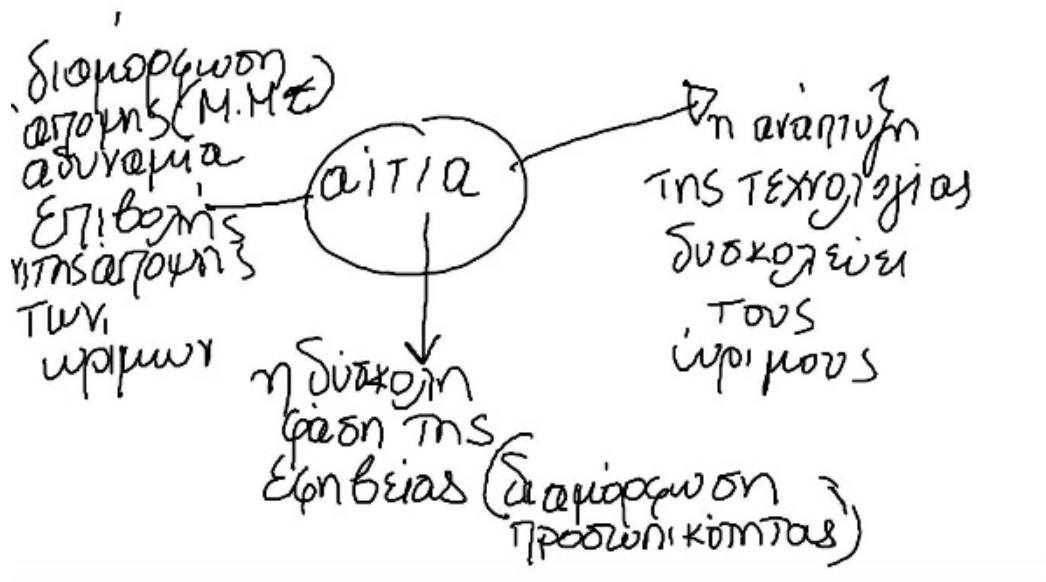 διαμόρφωση
άποψης (Μ.Μ.Ε)
αδυναμία
επιβολής
της άποψης
των
ωρίμων
αίτια
η ανάπτυξη
της τεχνολογίας
δυσκολεύει
τους
ώριμους
η δύσκολη
φάση της
εφηβείας (διαμόρφωση
προσωπικότητας)